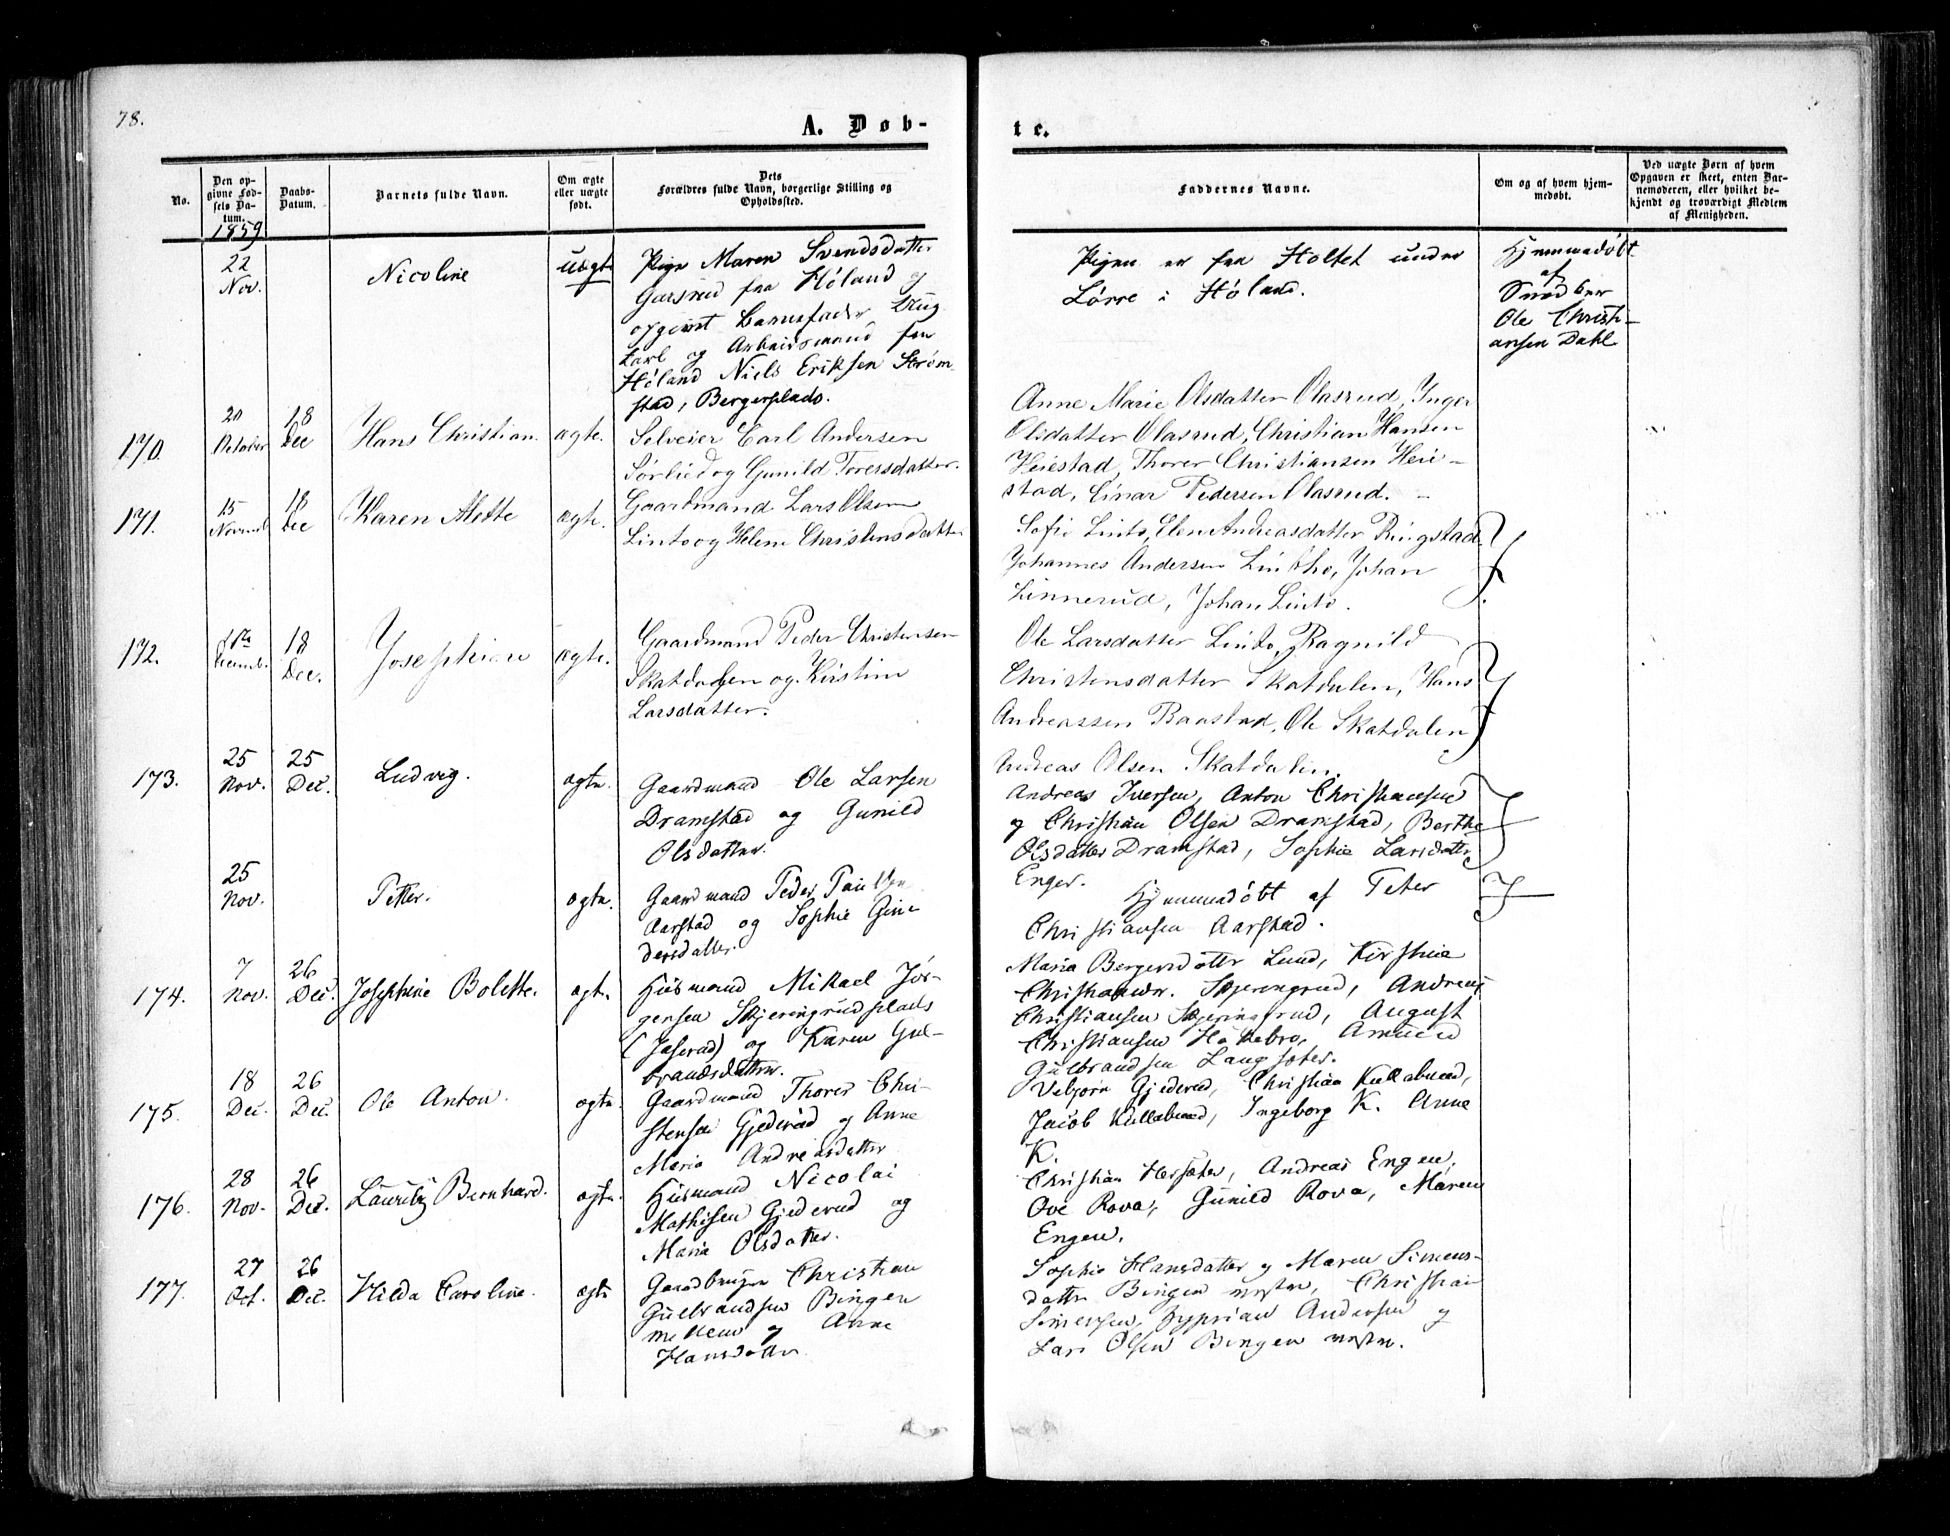 78.
A. Døb-
te.
No.
Den op-
givne Fød-
sels Da-
tum.
1859
Daabs-
Datum.
Barnets fulde Navn.
Om ægte
eller uægte
født.
Dets
Forældres fulde Navn, borgerlige Stilling og
Opholdssted.
Faddernes Navne.
Om og af hvem hjem-
medøbt.
Ved uægte Børn af hvem
Opgaven er skeet, enten Bar-
nemoderen, eller hvilket be-
kjendt og troværdigt Medlem
af Menigheden.
22
Nov.
Nicoline
uægte
Pige Maren Svendsdatter
Garsrud fra Høland og
opgivet Barnefader, Ung
karl og Arbeidsmand fra
Høland Niels Eriksen Strøm
stad, Bergerplads.
Pigen er fra Holtet under
Lørre i Høland.
Hjemmedøbt
af
Snedker
Ole Christi-
ansen Dahl
170.
20
October
18
Dec
Hans Christian.
ægte.
Selveier Carl Andersen
Sørlie og Gunild Toresdatter.
Anne Marie Olsdatter Olasrud, Inger
Olsdatter Olasrud, Christian Hansen
Heiestad, Thorer Christiansen Heie-
stad, Einar Pedersen Olasrud.
171.
15
Novemb
18
Dec
Karen Mette
ægte.
Gaardmand Lars Olsen
Linto og Helene Christensdatter
Sofie Linto, Elen Andreasdatter Ringstad
Johannes Andersen Lintho, Johan
Linnerud, Johan Linto.
172.
18
Dec.
Josephine
ægte.
Gaardmand Peder Christensen
Skatdalen og Kirstine
Larsdatter.
Ole Larsdatter Linto, Ragnild
Christensdatter Skatdalen, Hans
Andreassen Raastad, Ole Skatdalen
Andreas Olsen Skatdalen.
173.
25
Nov.
25
Dec.
Ludvig.
ægte.
Gaardmand Ole Larsen
Dramstad og Gunild
Olsdatter.
Andreas Iversen, Anton Christiansen
og Christian Olsen Dramstad, Berthe
Olsdatter Dramstad, Sophie Larsdatter
Enger.
25
Nov.
Petter.
ægte.
Gaardmand Peder Paulsen
Aarstad og Sophie Gun
dersdatter.
Hjemmedøbt af Peter
Christiansen Aarstad.
174.
7
Nov.
26
Dec.
Josephine Bolette.
ægte.
Husmand Mikael Jør-
gensen Skjeringrudplads
(Jaserud) og Karen Gul-
brandsdatter.
Maria Bergersdatter Lund, Kirstine
Christiansdr. Skjeringrud, Andreas
Christiansen Skjeringrud, August
Christiansen Hokkebro, Amund
Gulbrandsen Langsæter.
175.
18
Dec.
26
Dec.
Ole Anton.
ægte.
Gaardmand Thorer Chri-
stensen Gjederud og Anne
Maria Andreasdatter
Vebjørn Gjederud, Christian Kullebund,
Jacob Kullebund, Ingeborg K. Anne
K.
176.
28
Nov.
26
Dec.
Lauritz Bernhard.
ægte.
Husmand Nicolai
Mathisen Gjederud og
Maria Olsdatter.
Christian Hersæter, Andreas Engen,
Ove Rova, Gunild Rova, Maren
Engen.
177.
27
Oct.
26
Dec.
Hilda Caroline.
ægte
Gaardbruger Christian
Gulbrandsen Bingen
mellem og Anne
Hansdatter
Sophie Hansdatter og Maren Simens-
datter Bingen vestre, Christian
Simensen, Syprian Andersen og
Lars Olsen Bingen vestre.